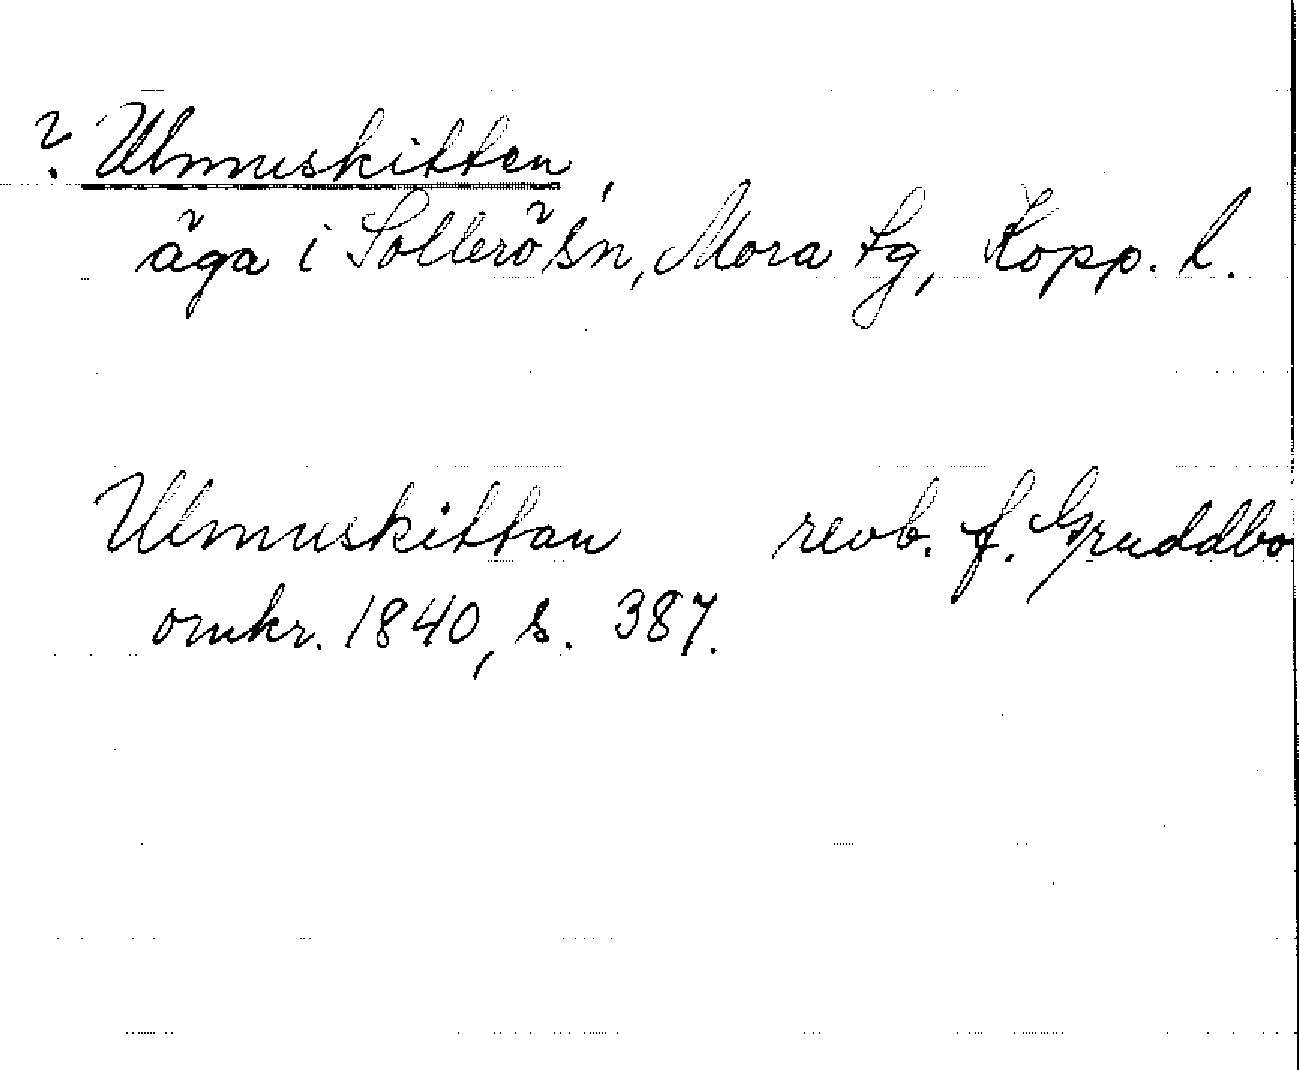 ? Ulmuskitten,
äga i Sollerö sn, Mora tg, Kopp. l.
Ulmuskittan revb. f. Gruddbo
omkr. 1840, s. 387.